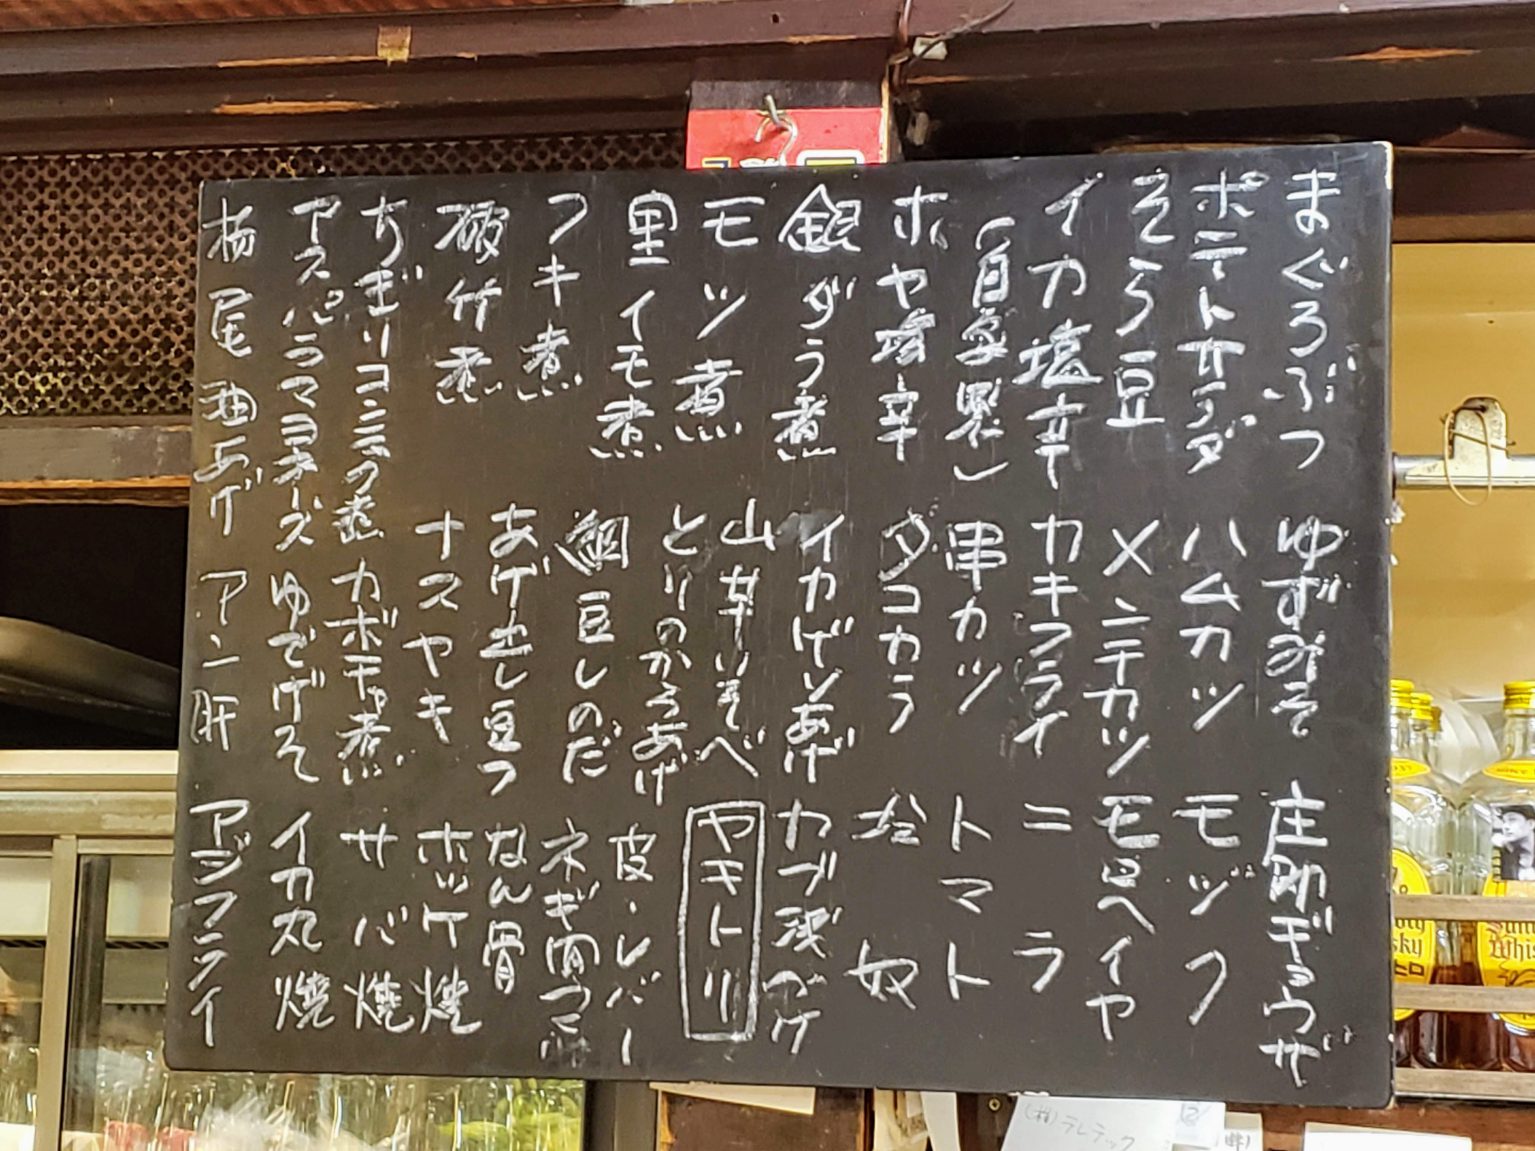 まぐろぶつ
ポテトサラダ
そら豆
イカ塩辛
(自家製)
ホヤ塩辛
銀ダラ煮
モツ煮
里イモ煮
フキ煮
破竹煮
ちぎりコンニャク煮
アスパラマヨネーズ
栃尾油あげ
ゆずみそ
ハムカツ
メンチカツ
カキフライ
串カツ
タコカラ
イカげしあげ
山芋いそべ
とりのからあげ
あげ出し豆フ
ナスヤキ
カボチャ煮
ゆでげそ
アン肝
庄助ギョウザ
モヅク
モロヘイヤ
ニラ
トマト
奴
カブ浅づけ
ヤキトリ
皮・レバー
ネギ間
なん骨
ホッケ焼
サバ焼
イカ丸焼
アジフライ
(株)テレテック